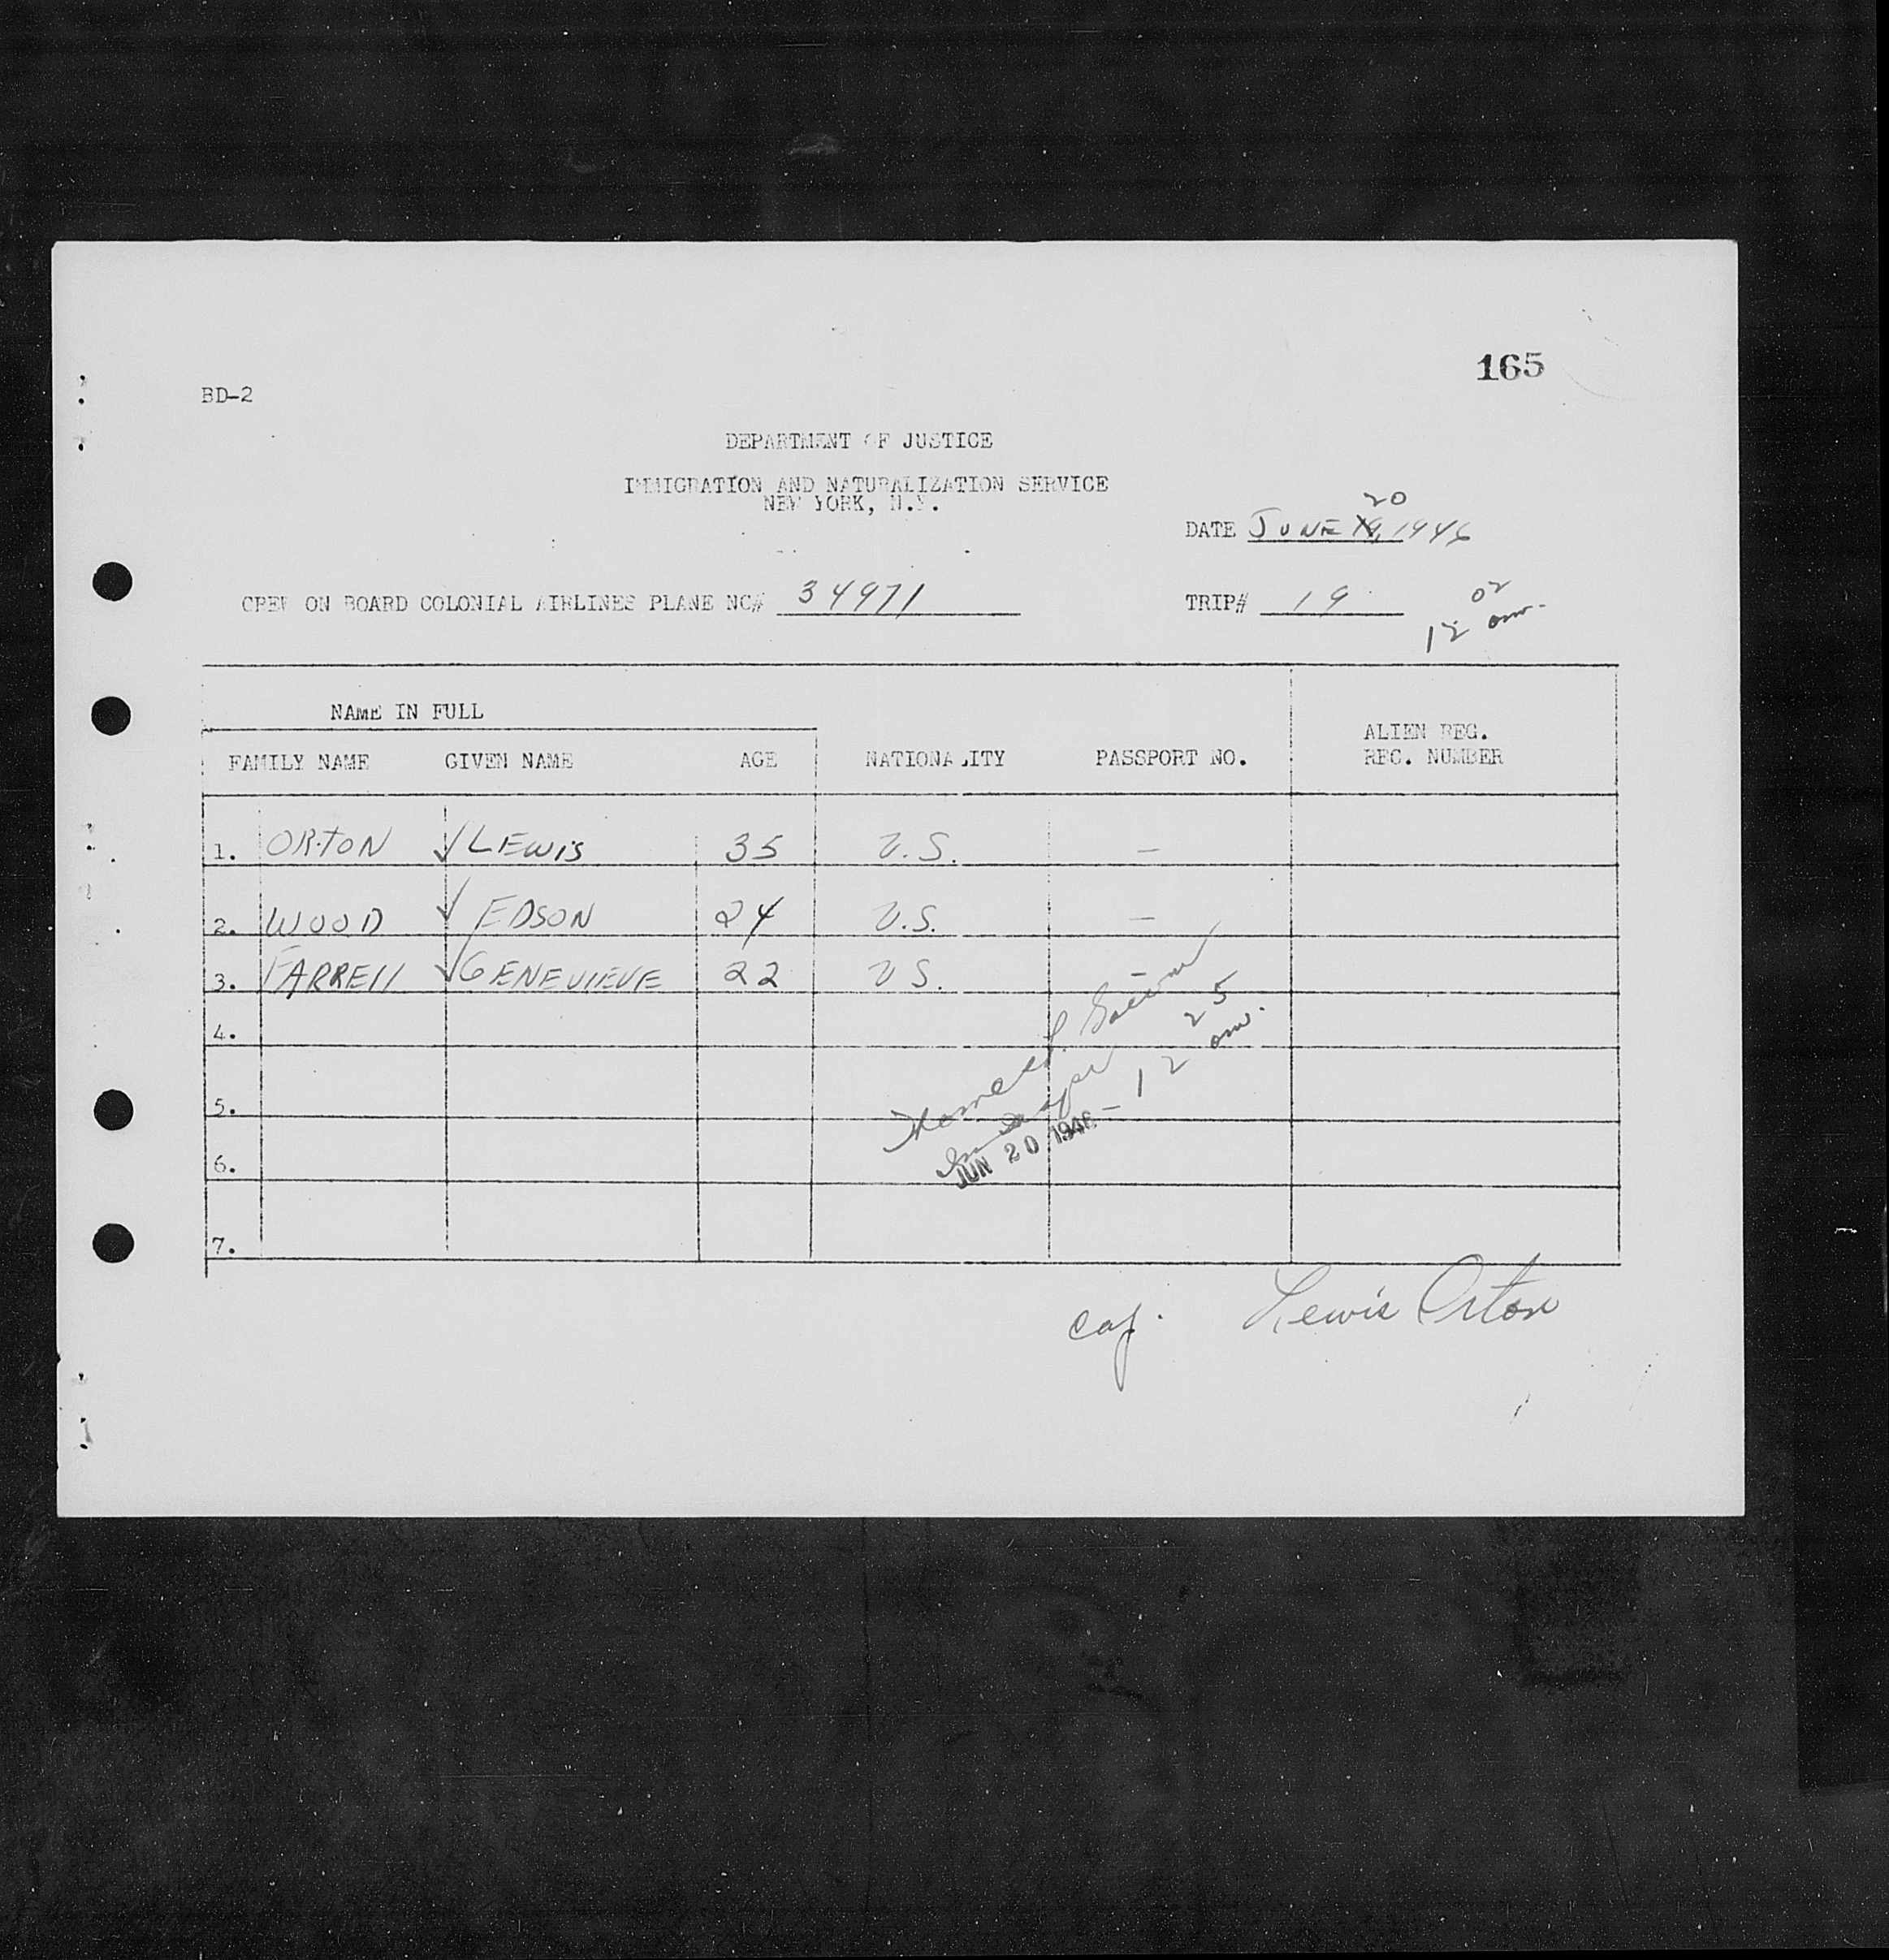 165
BD-2
DEPARTMENT OF JUSTICE
IMMIGRATION AND NATURALIZATION SERVICE
NEW YORK, N.Y.
20
DATE JUNE 19, 1946
CREW ON BOARD COLONIAL AIRLINES PLANE NC# 34971 TRIP# 19
12 02 am.
NAME IN FULL
FAMILY NAME GIVEN NAME AGE NATIONALITY PASSPORT NO. ALIEN REG.
REC. NUMBER
1. ORTON ✓ LEWIS 35 U.S. —
2. WOOD ✓ EDSON 24 U.S. —
3. FARRELL ✓ GENEVIEVE 22 U S. —
4.
5.
6.
7.
Thomas J.
JUN 20 1946 — 12 25 am.
Lewis Orton